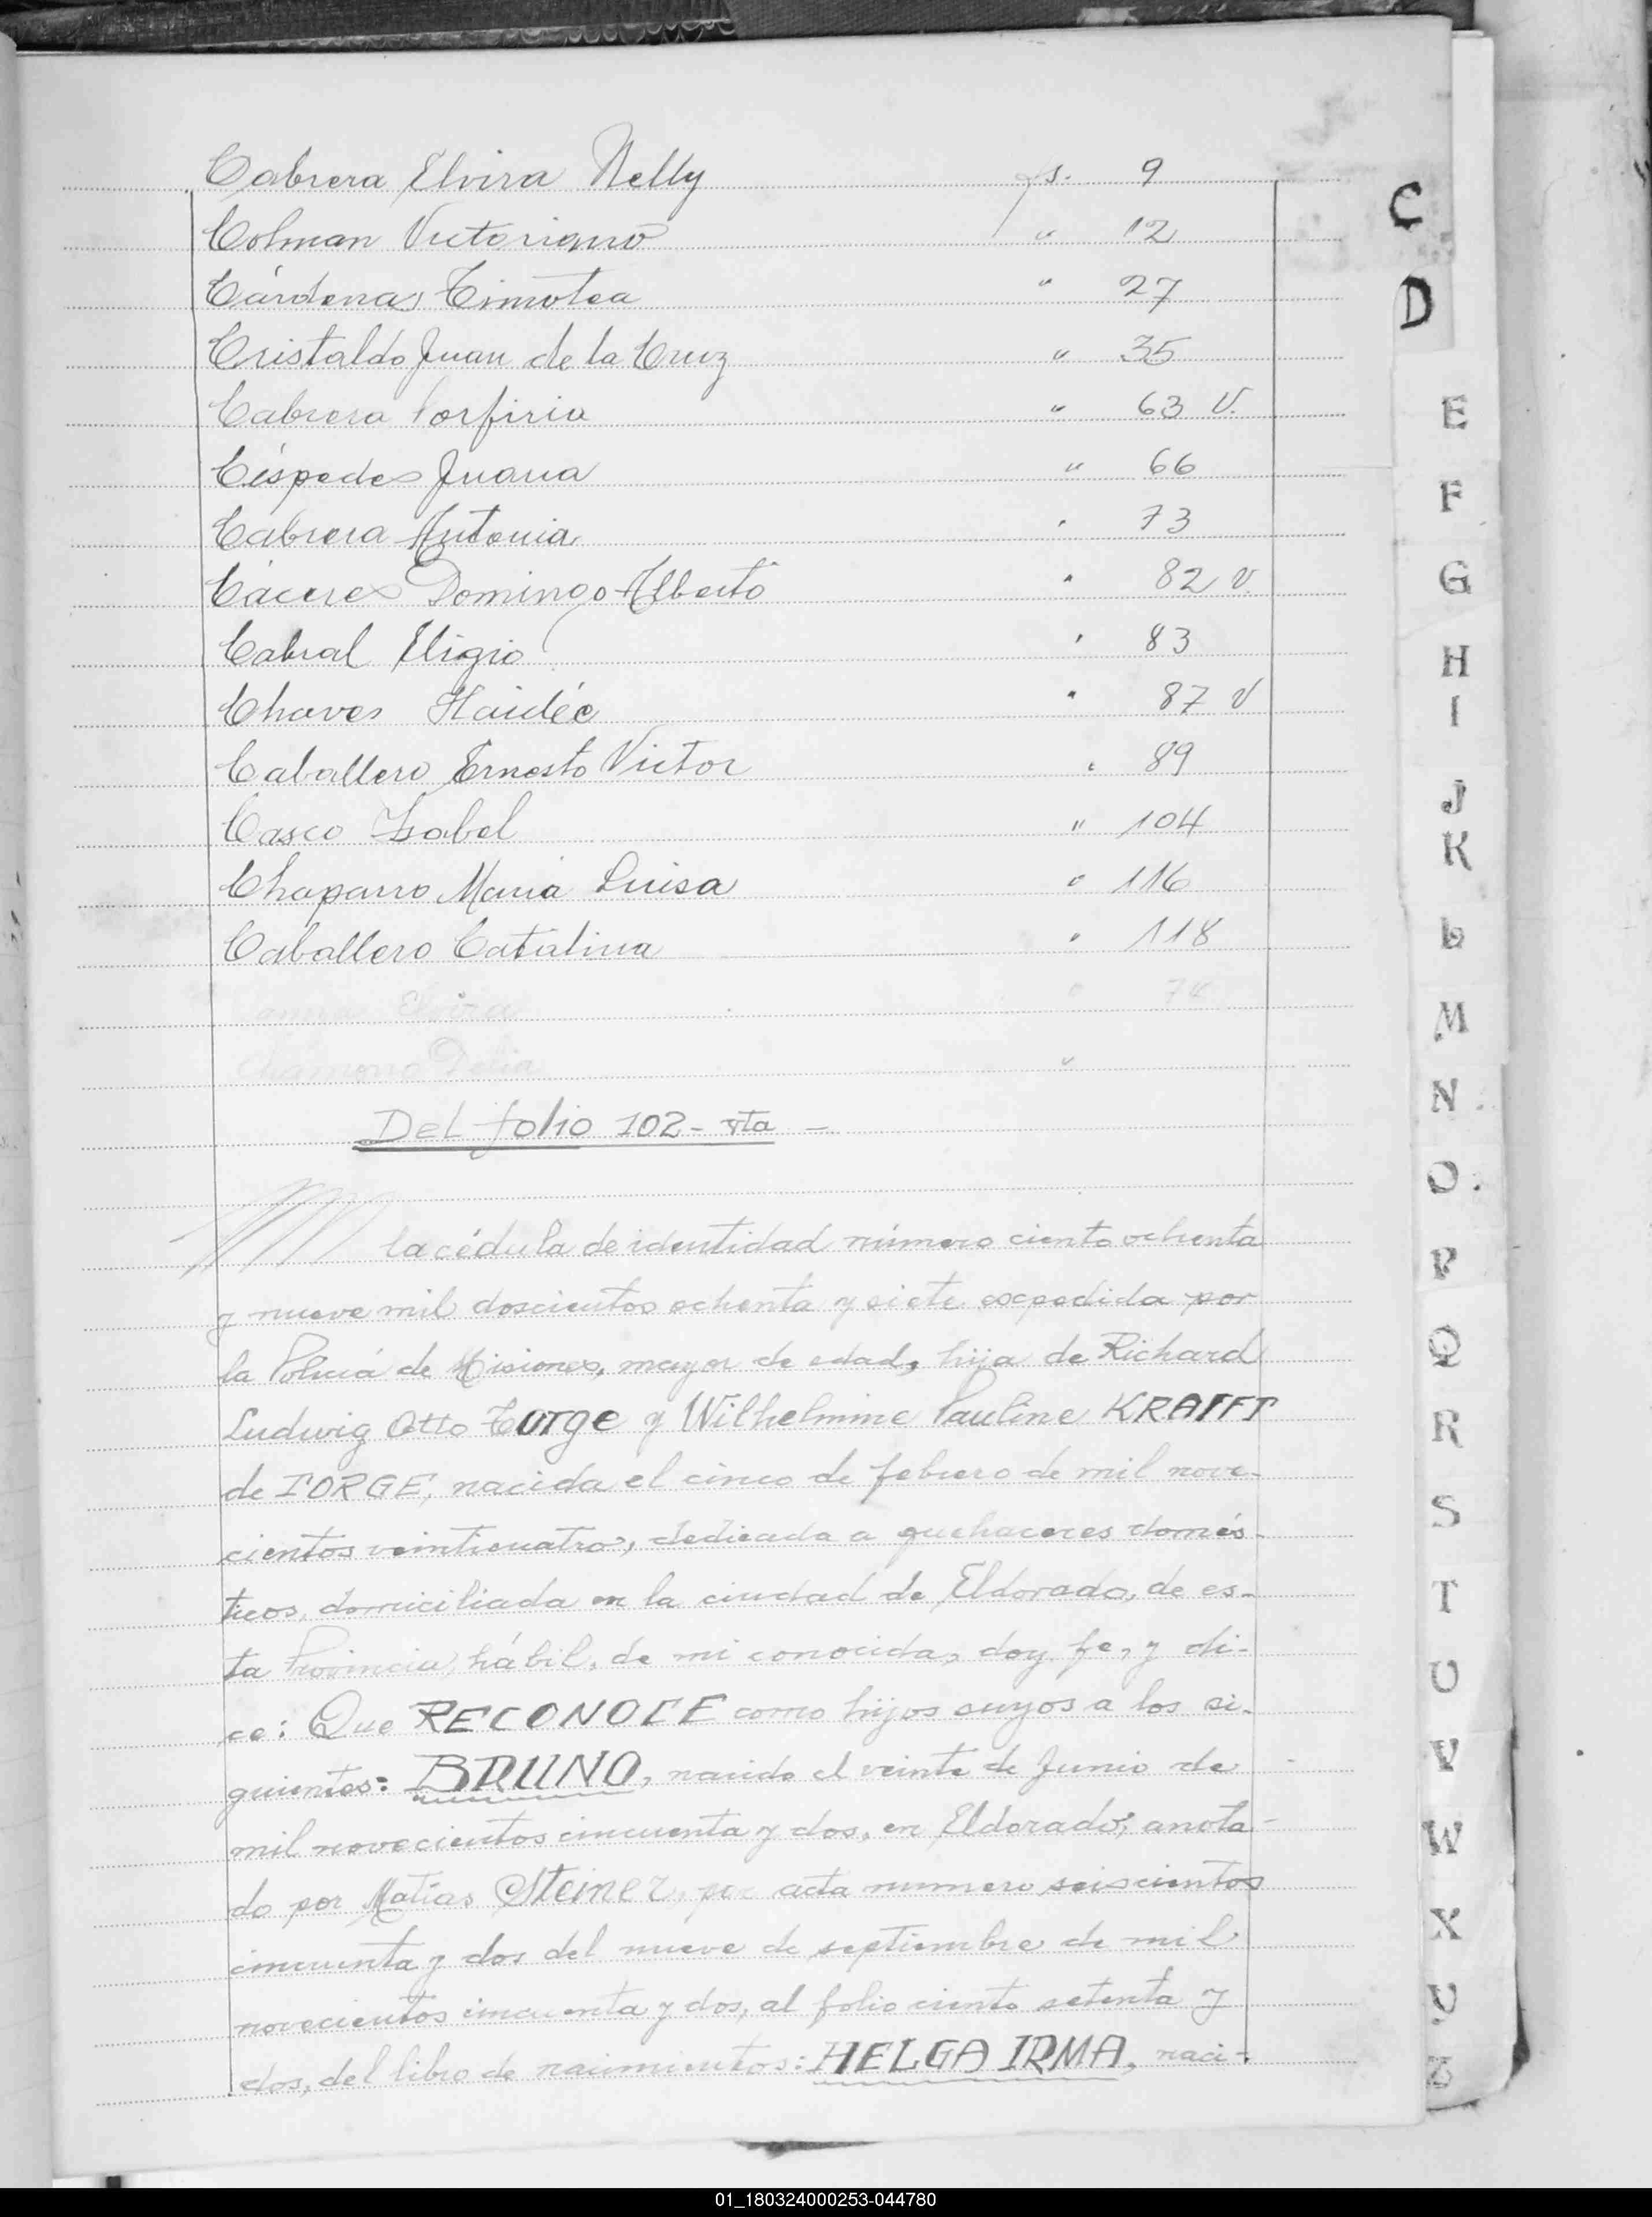 Cabrera Elvira Nelly fs. 9
Colman Victoriano " 12
Cárdenas Timotea " 27
Cristaldo Juan de la Cruz " 35
Cabrera Porfiria " 63 V.
Céspedes Juana " 66
Cabrera Antonia " 73
Cáceres Domingo Alberto " 82 v.
Cabral Eligio " 83
Chaves Haidée " 87 v
Caballero Ernesto Victor " 89
Casco Isabel " 104
Chaparro Maria Luisa " 116
Caballero Catalina " 118
Elvira
Chamorro Delia "
Del folio 102- vta -
la cédula de identidad número ciento ochenta
y nueve mil doscientos ochenta y siete expedida por
la Policía de Misiones, mayor de edad, hija de Richard
Ludwig Otto Torge y Wilhelmine Pauline KRAFFT
de TORGE, nacida el cinco de febrero de mil nove-
cientos veinticuatro, dedicada a quehaceres domés-
ticos, domiciliada en la ciudad de Eldorado, de es-
ta Provincia, hábil, de mi conocida, doy fe, y di-
ce: Que RECONOCE como hijos suyos a los si-
guientes: BRUNO, nacido el veinte de Junio de
mil novecientos cincuenta y dos, en Eldorado; anota-
do por Matías Steiner, por acta numero seiscientos
cincuenta y dos del nueve de septiembre de mil
novecientos cincuenta y dos, al folio ciento setenta y
dos, del libro de nacimientos: HELGA IRMA, naci-
C
D
E
F
G
H
I
J
K
L
M
N
O
P
Q
R
S
T
U
V
W
X
Y
Z
01_180324000253-044780